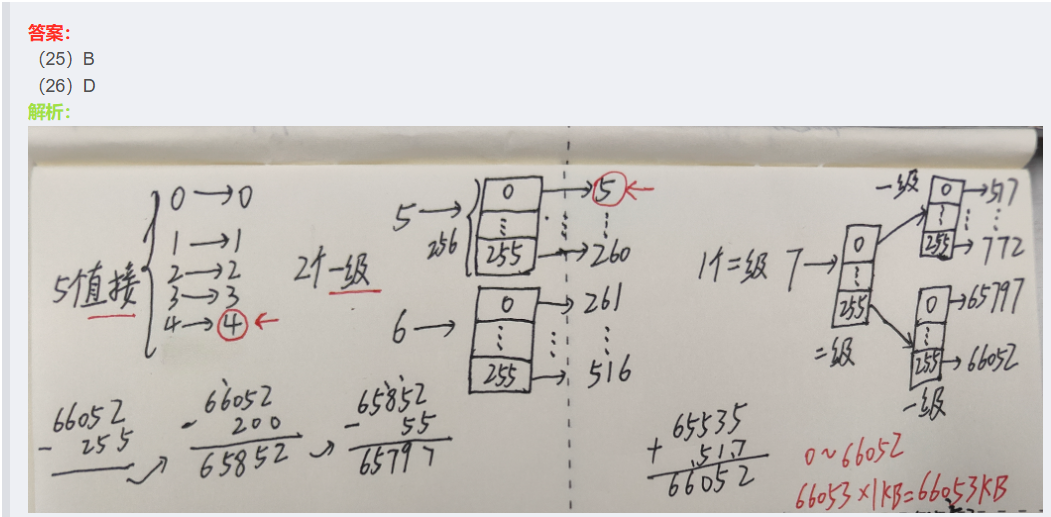 答案：
（25）B
（26）D
解析：
5个直接
0→0
1→1
2→2
3→3
4→4←
2个一级
5→
256
0→5←
⋮ ⋮
255→260
6→
0→261
⋮ ⋮
255→516
1个二级 7→
0
⋮
255
二级
一级
0→517
⋮ ⋮
255→772
0→65797
⋮
255→66052
一级
66052
- 255
66052
- 200
65852
65852
- 55
65797
65535
+ 517
66052
0~66052
66053×1KB=66053KB